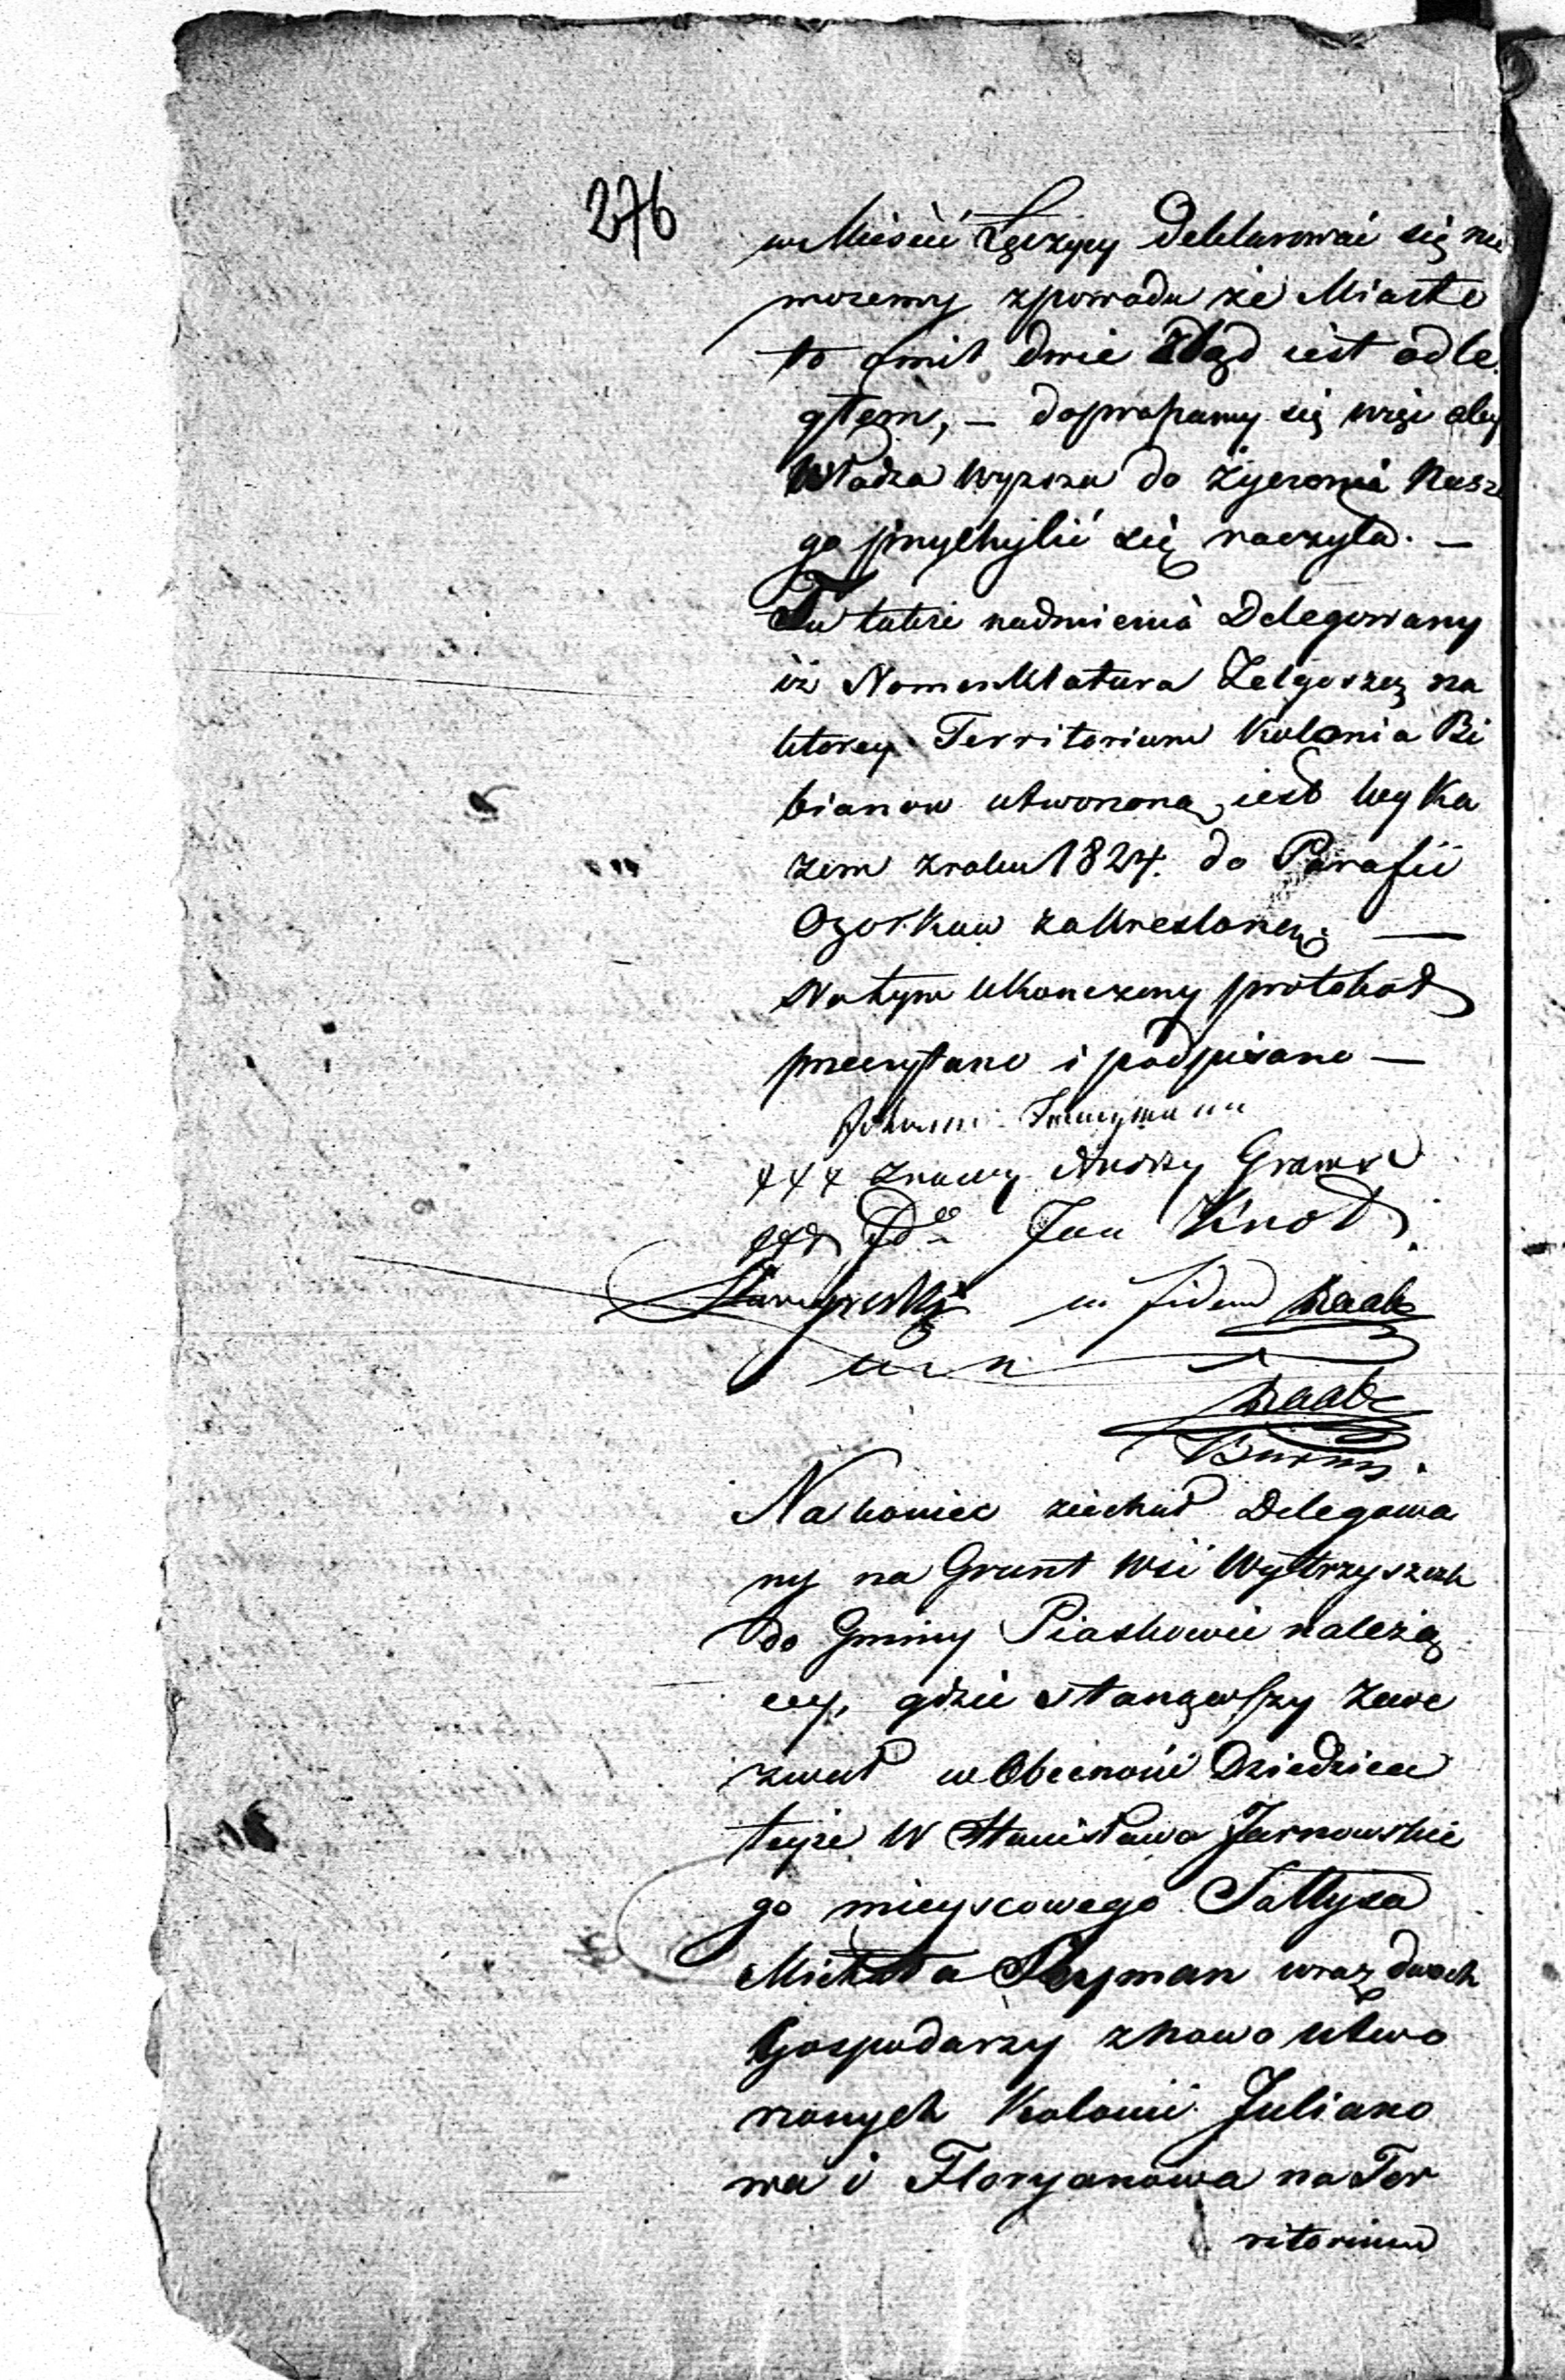 276
w Mieście Łęczycy deklarować się nie
możemy zpowodu że Miasto
to o mil dwie ztąd iest odle
głem, — dopraszamy się więc aby
Władza wyższa do życzenia Nasze
go przychylić się raczyła. —
Tu także nadmienia Delegowany
iż Nomenklatura Zelgoszcz na
ktorey Territorium Kolonia Bi
bianow utworzona, iest wyka
zem zroku 1824. do Parafii
Ozorkow zakreslona. —
Na tym ukonczony protokoł
przeczytano i podpisano —
+++ znowy Andrzy
+++ Jan Knot
in fidem Raabe
Raabe
Burm.
Nakoniec ziechał Delegowa
ny na Grunt Wsi Wytrzyszczk
do Gminy Piaskowie należą
cey, gdzie stanąwszy zawe
zwał w Obecności Dziedzica
teyże W Stanisława Jarnowskie
go mieyscowego Sołtysa
Michała wraz dwoch
Gospodarzy znowo utwo
rzonych Kolonii Juliano
wa i Floryanowa na Ter
ritorium